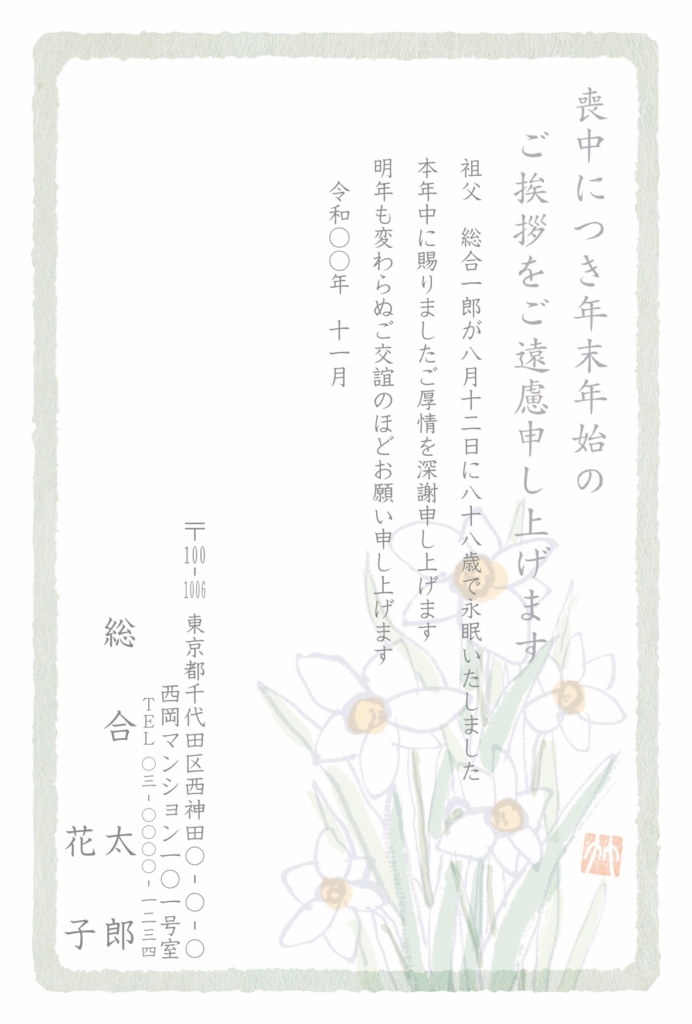 喪中につき年末年始の
ご挨拶をご遠慮申し上げます
祖父　総合一郎が八月十二日に八十八歳で永眠いたしました
本年中に賜りましたご厚情を深謝申し上げます
明年も変わらぬご交誼のほどお願い申し上げます
令和〇〇年　十一月
〒100-1006　東京都千代田区西神田〇-〇-〇
西岡マンション一〇一号室
ＴＥＬ〇三-〇〇〇〇-一二三四
総　合　太　郎
花　子